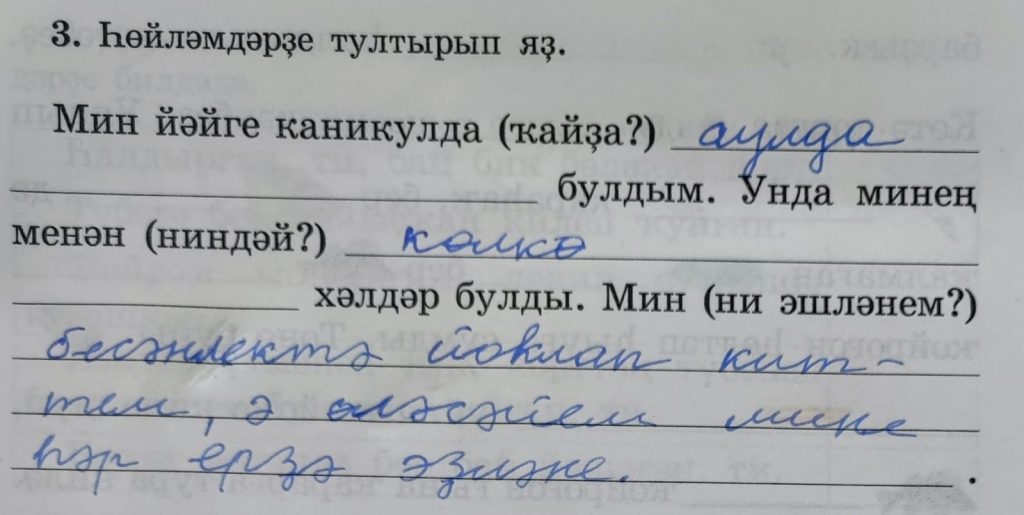 3. Һөйләмдәрҙе тултырып яҙ.
Мин йәйге каникулда (ҡайҙа?) аулда
булдым. Унда минең
менән (ниндәй?) көлкө
хәлдәр булды. Мин (ни эшләнем?)
бесәнлектә йоклап кит-
тем, ә өләсәйем мине
һәр ерҙә эҙләне.